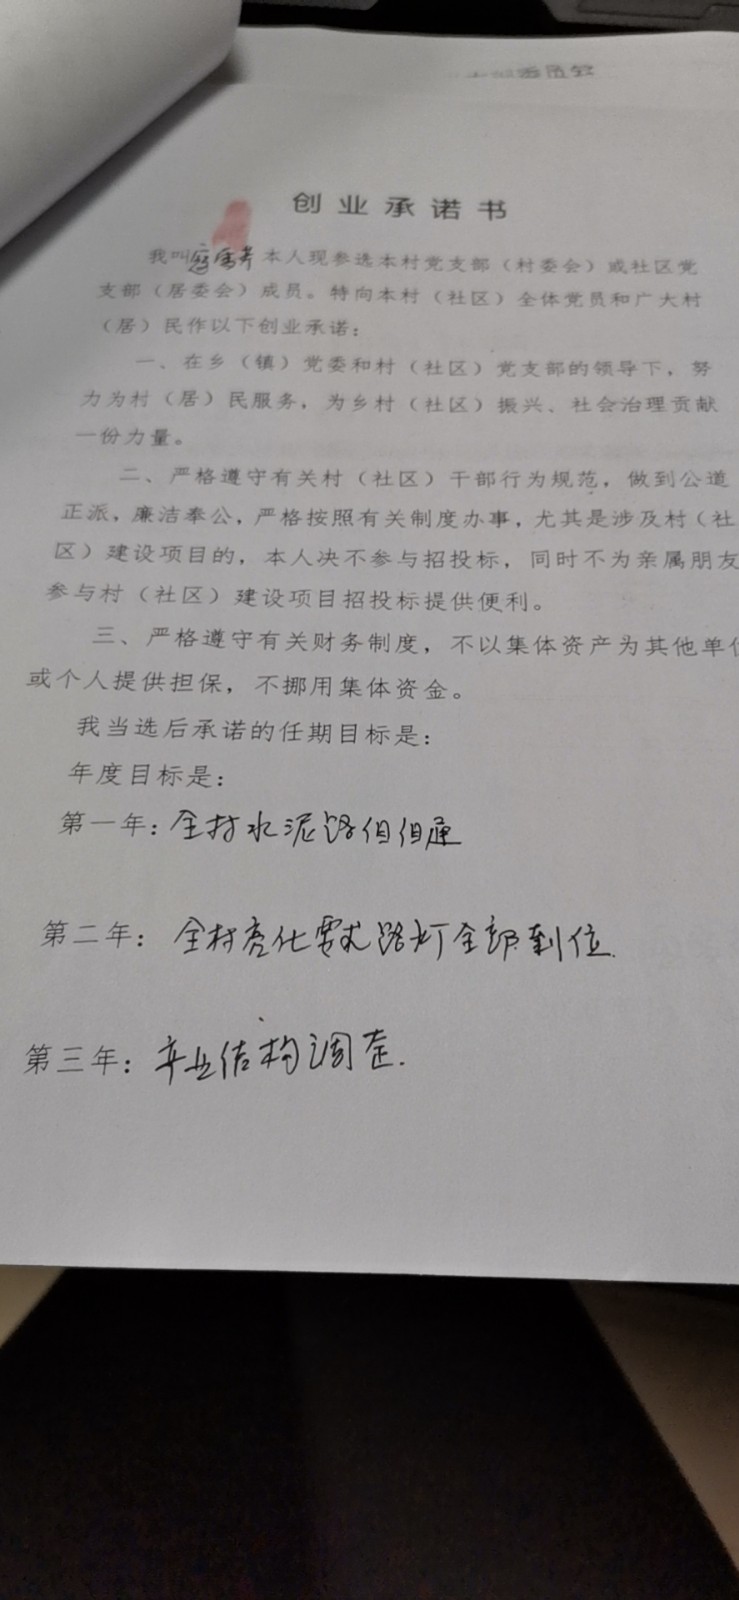 创业承诺书
我叫 本人现参选本村党支部（村委会）或社区党
支部（居委会）成员。特向本村（社区）全体党员和广大村
（居）民作以下创业承诺：
一、在乡（镇）党委和村（社区）党支部的领导下，努
力为村（居）民服务，为乡村（社区）振兴、社会治理贡献
一份力量。
二、严格遵守有关村（社区）干部行为规范，做到公道
正派，廉洁奉公，严格按照有关制度办事，尤其是涉及村（社
区）建设项目的，本人决不参与招投标，同时不为亲属朋友
参与村（社区）建设项目招投标提供便利。
三、严格遵守有关财务制度，不以集体资产为其他单位
或个人提供担保，不挪用集体资金。
我当选后承诺的任期目标是：
年度目标是：
第一年：全村水泥路组组通
第二年：全村亮化要求路灯全部到位.
第三年：产业结构调整.